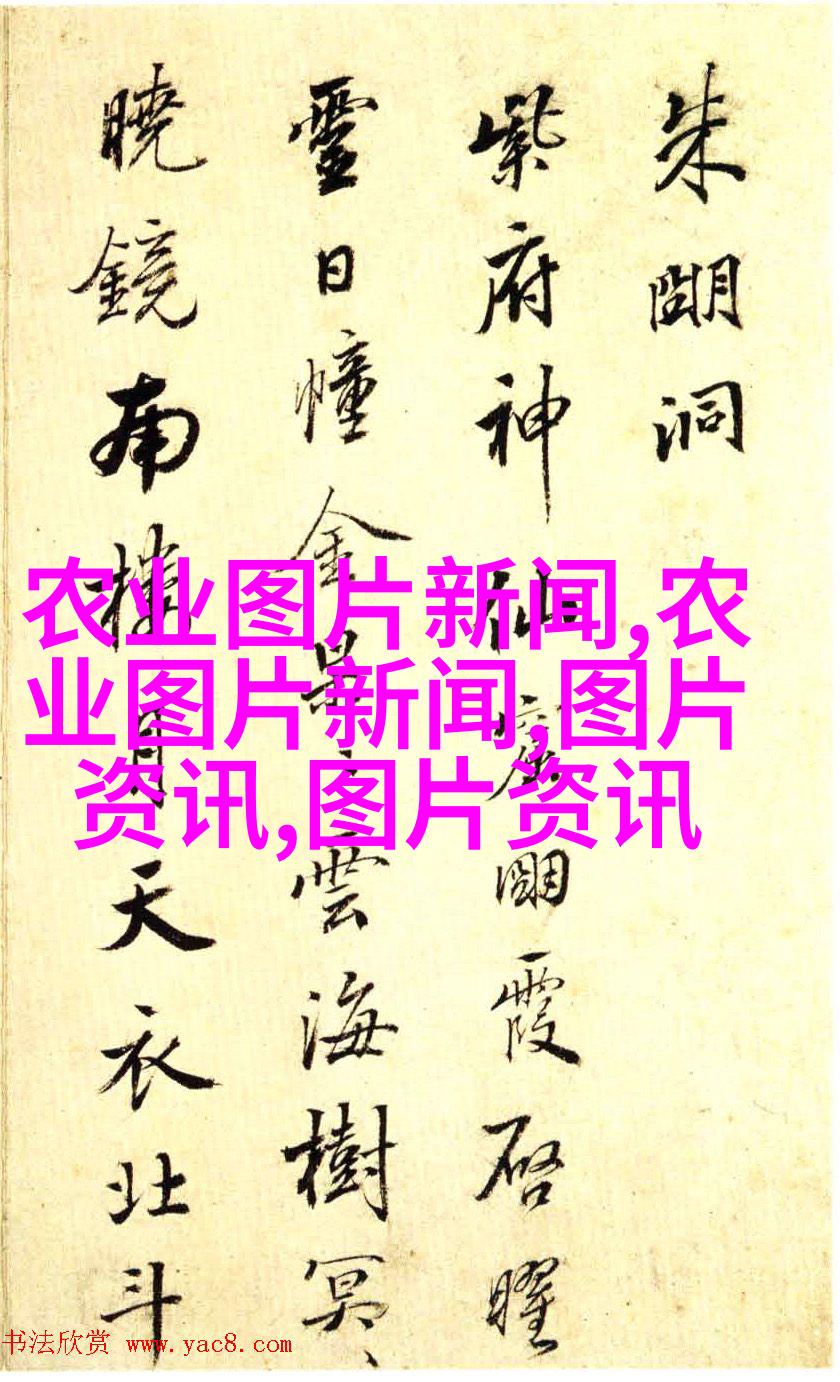 朱朙洞
紫府神仙窟朙霞启曜
靈日幢金景、雲海樹冥、
曉鏡南樓月天衣北斗
农业图片新闻,农
业图片新闻,图片
资讯,图片资讯
书法欣赏 www.yac8.com